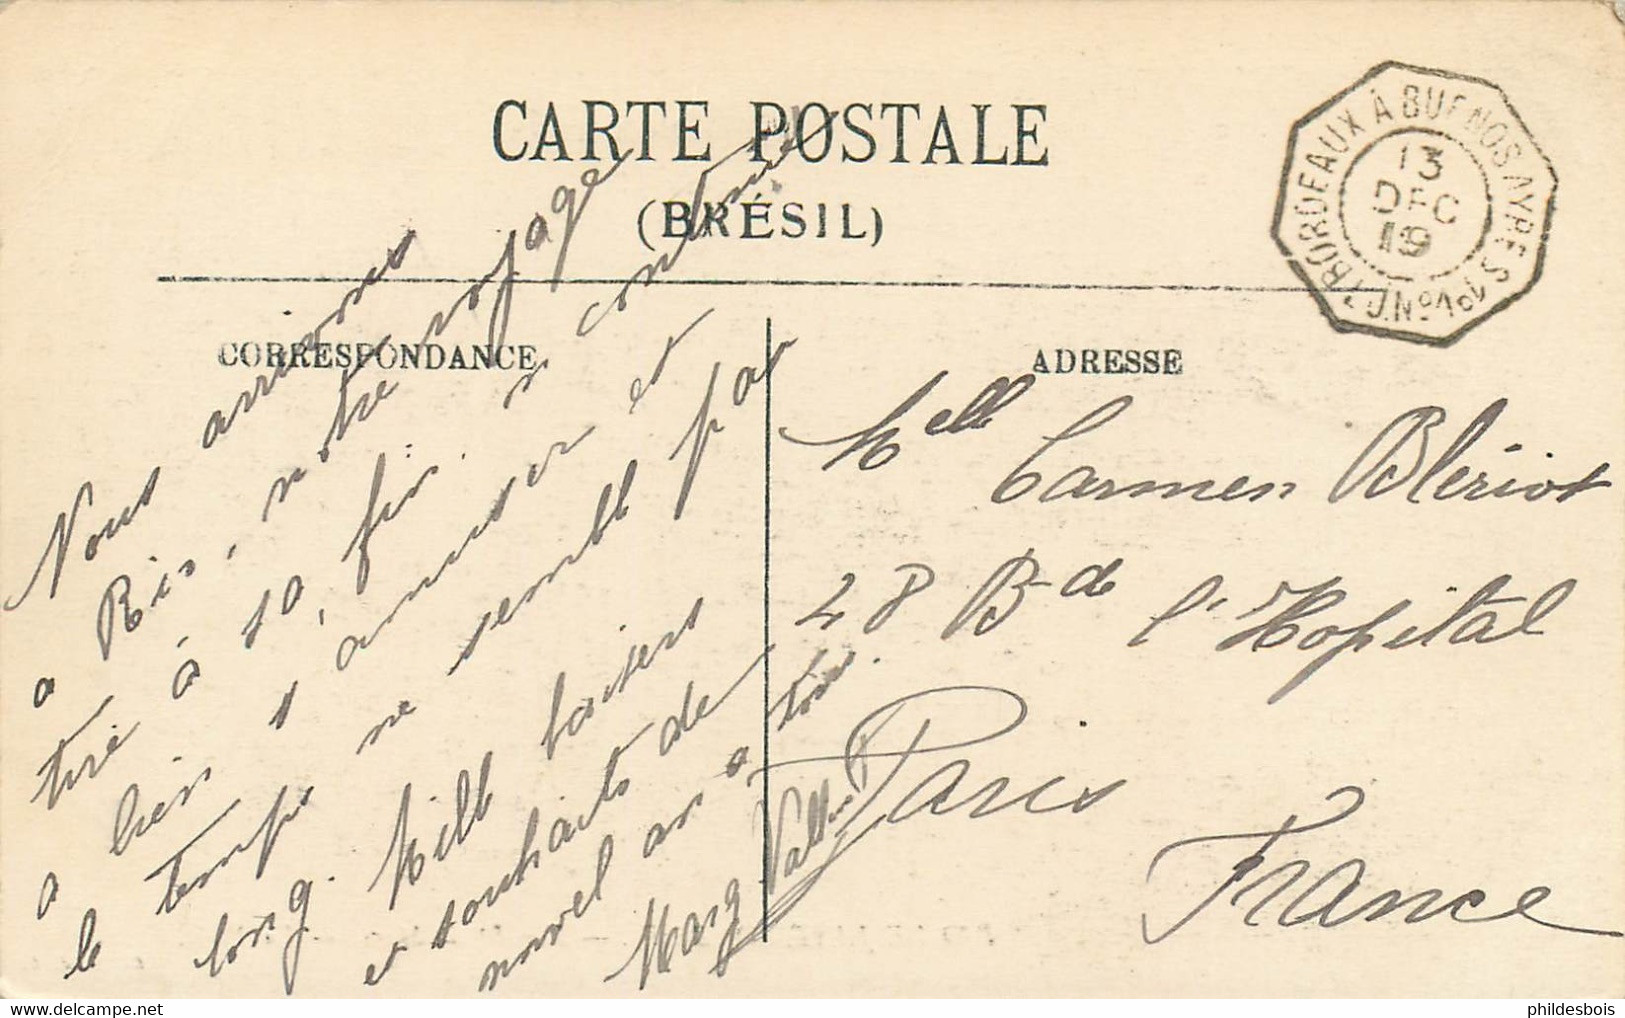 CARTE POSTALE
(BRÉSIL)
BORDEAUX À BUENOS AYRES 1º
13
DEC
19
CORRESPONDANCE
ADRESSE
Nous arrivons
a Rio, notre voyage
tire à sa fin, on continue
a bien s'amuser et
le temps ne semble pas
long. Mille baisers
et souhaits de
nouvel an a tous.
Marg
Melle Carmen Blériot
28 Bd de l'Hopital
Paris
France
phildesbois